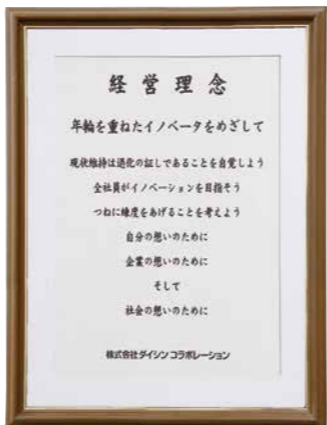 経営理念
年輪を重ねたイノベータをめざして
現状維持は退化の証しであることを自覚しよう
全社員がイノベーションを目指そう
つねに練度をあげることを考えよう
自分の想いのために
企業の想いのために
そして
社会の想いのために
株式会社ダイシン コラボレーション